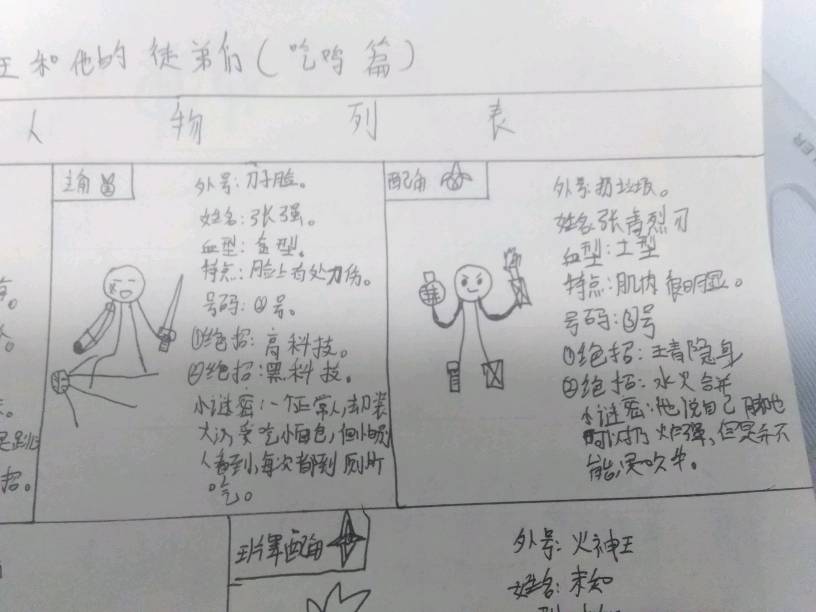 王和他的徒弟们(吃鸡篇)
人物列表
主角
外号:刀子脸。
姓名:张强。
血型:金型。
特点:脸上有处刀伤。
号码:②号。
①绝招:高科技。
②绝招:黑科技。
小谜密:一个正常人,却装
爱吃小面包,但怕别
人看到,每次都到厕所
吃。
配角
外号:扔垃圾。
姓名:张青烈刃
血型:土型
特点:肌肉很明显。
号码:③号
①绝招:隐身
②绝招:水火合并
小谜密:他说自己
炸弹,但是并不
能,是吹牛。
是跳
招。
配角
外号:火神王
姓名:未知